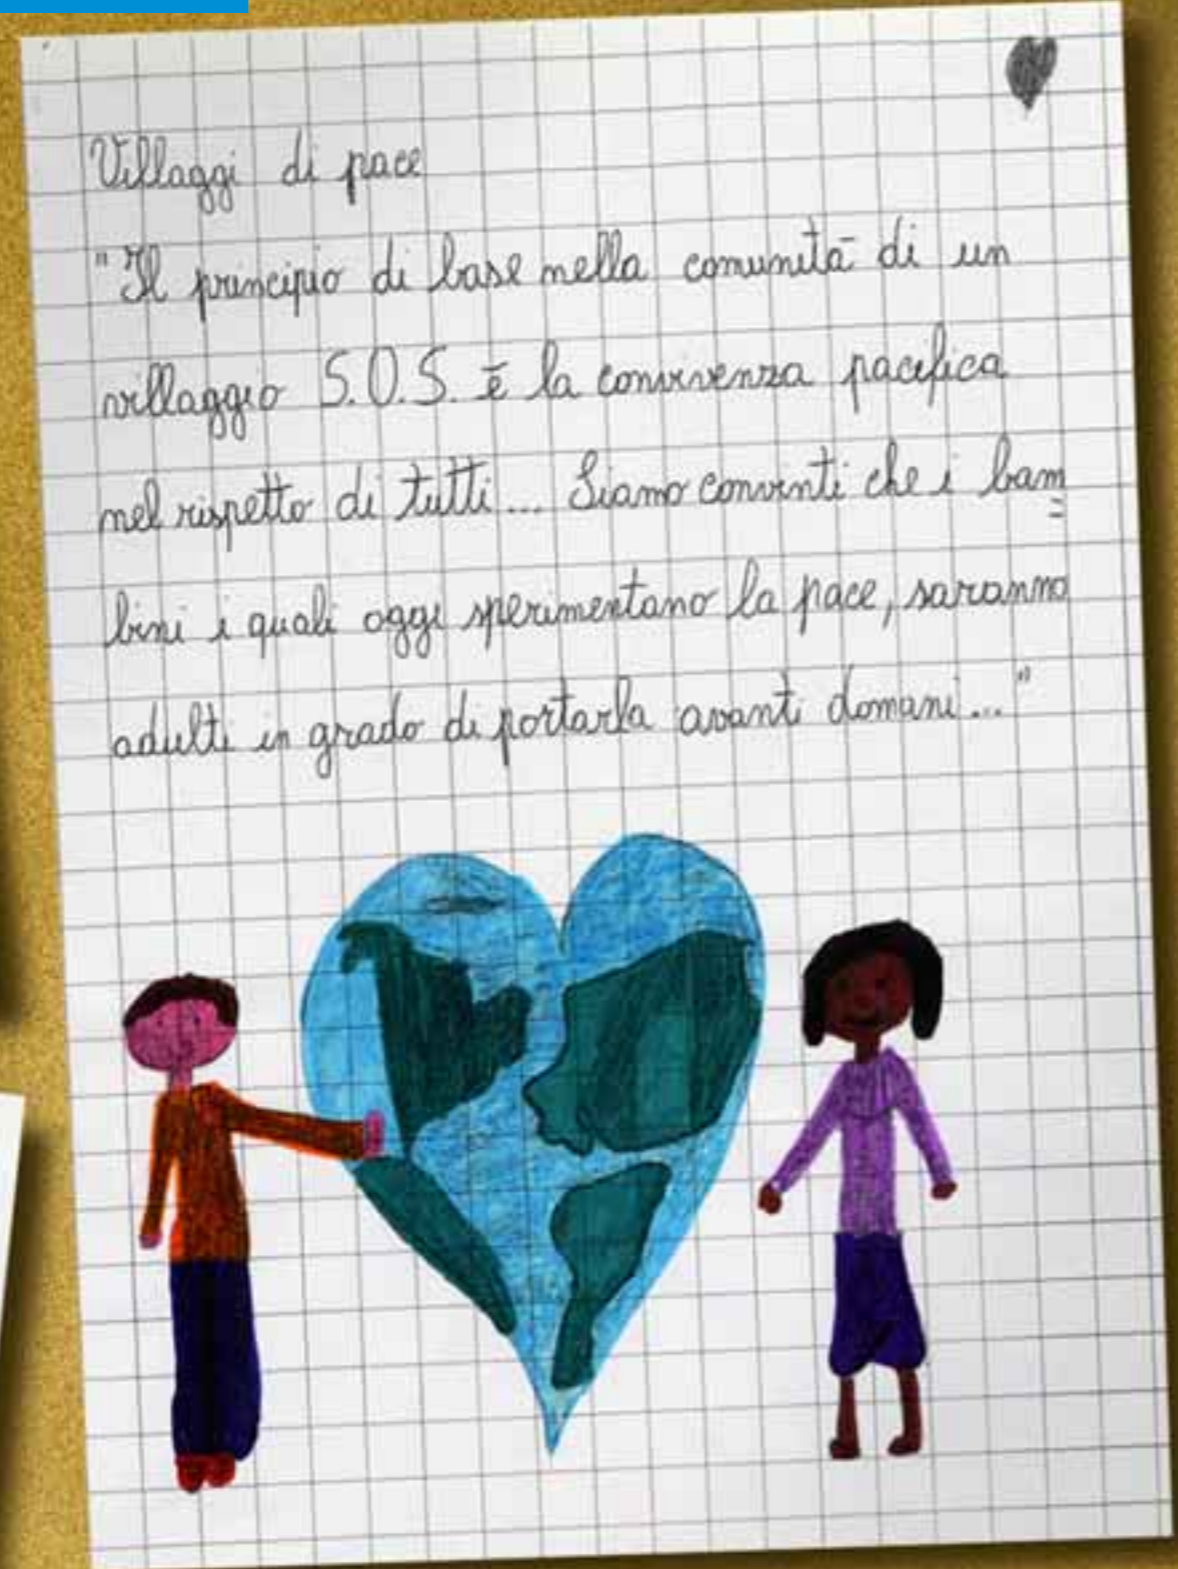 Villaggi di pace
"Il principio di base nella comunità di un
villaggio S.O.S. è la convivenza pacifica
nel rispetto di tutti... Siamo convinti che i bam
bini i quali oggi sperimentano la pace, saranno
adulti in grado di portarla avanti domani..."